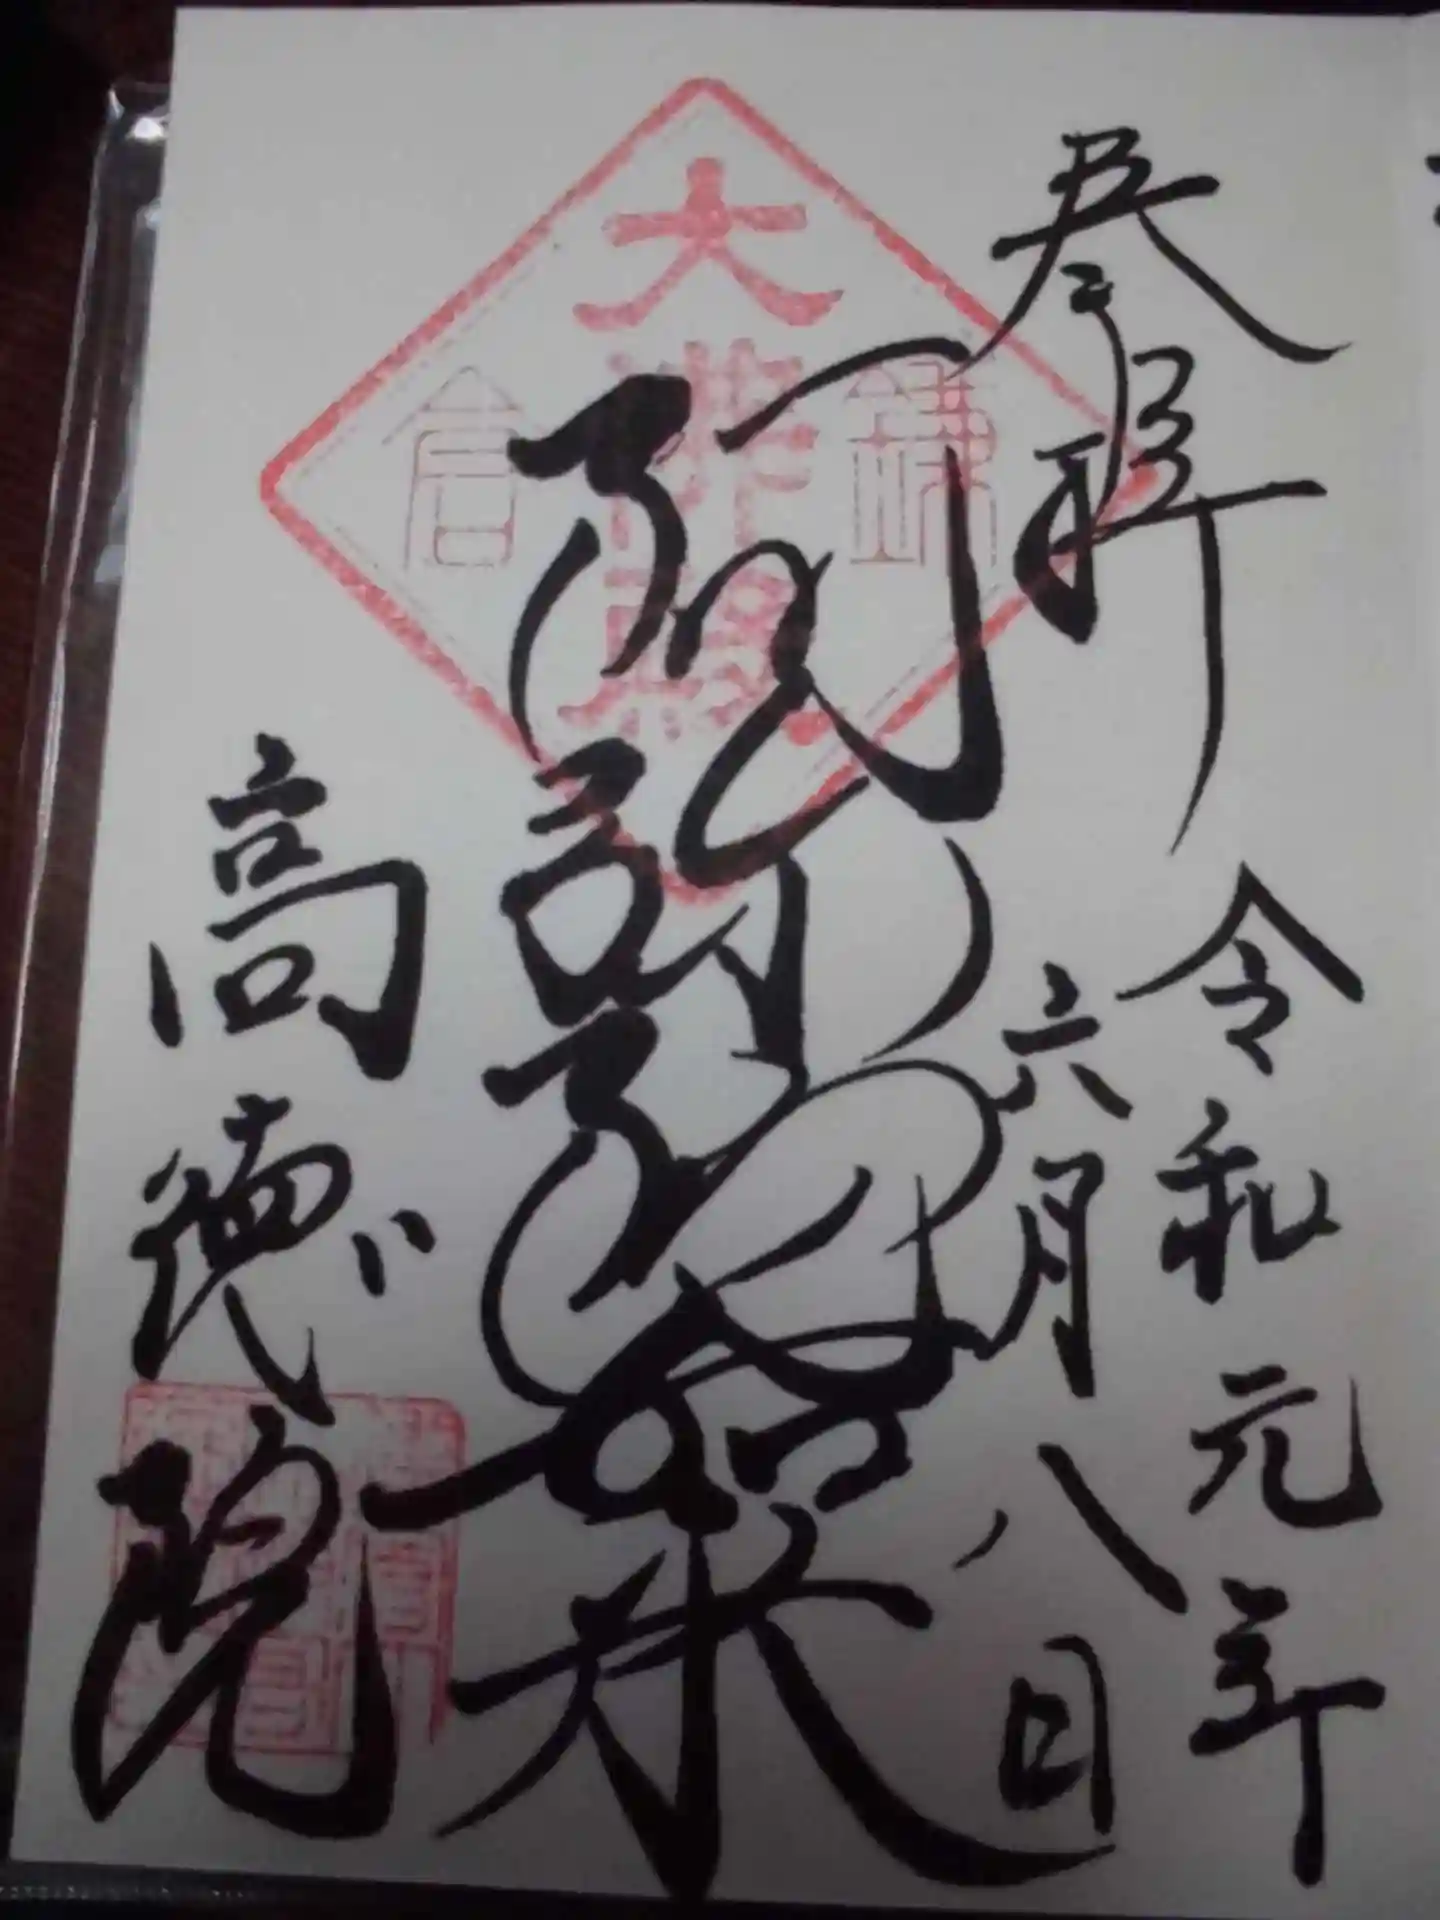 奉拝
令和元年
六月八日
阿弥陀如来
高徳院
大
鎌倉